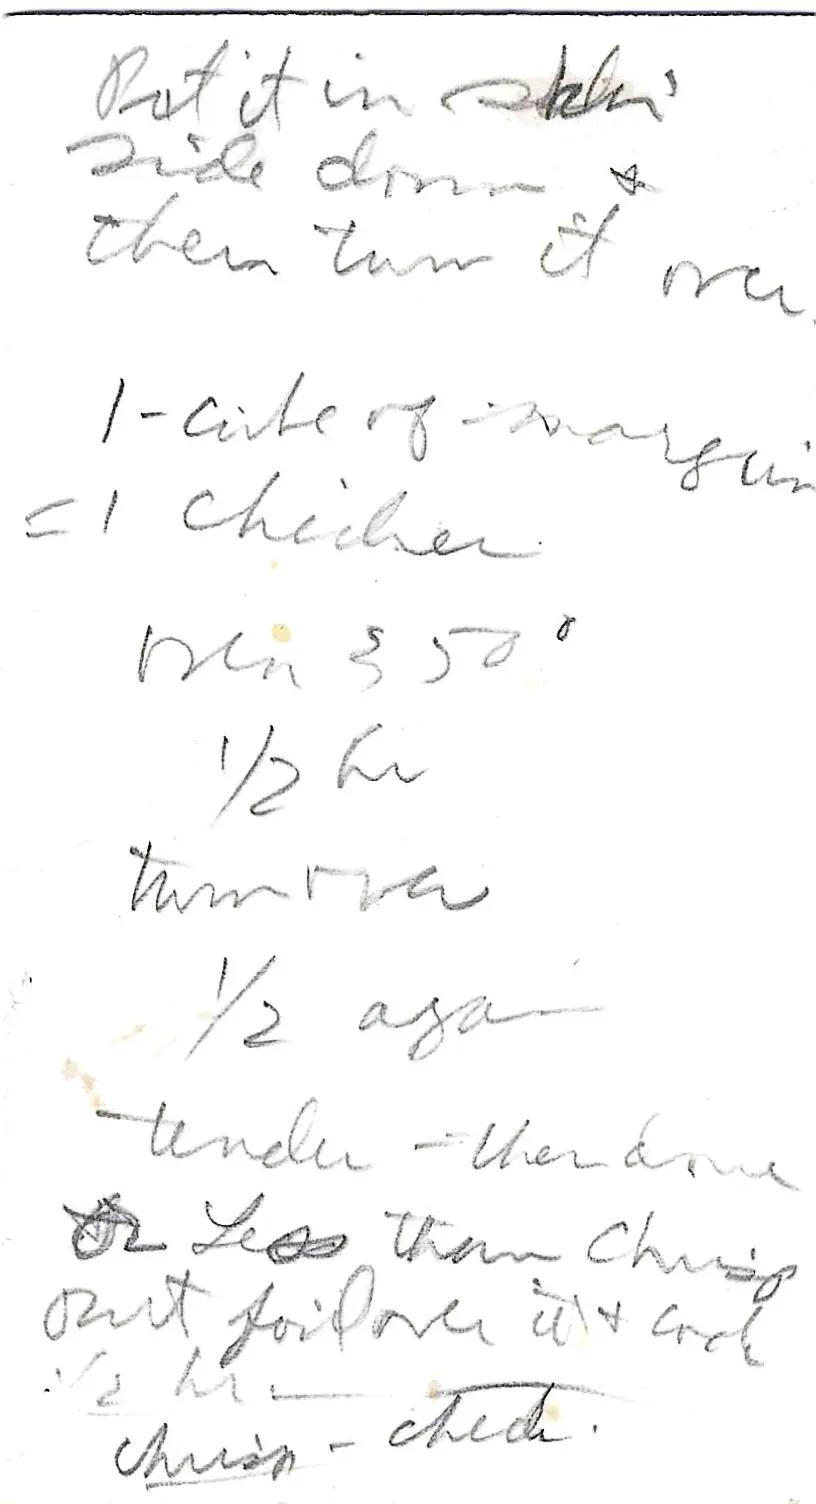 Put it in skin
side down &
then turn it over.
1 - cube of margarin
= 1 chicken
oven 350°
1/2 hr
turn over
1/2 again
tender - then done
or Less than Chrisp
put foil over it & cook
1/2 hr.
chrisp - check.